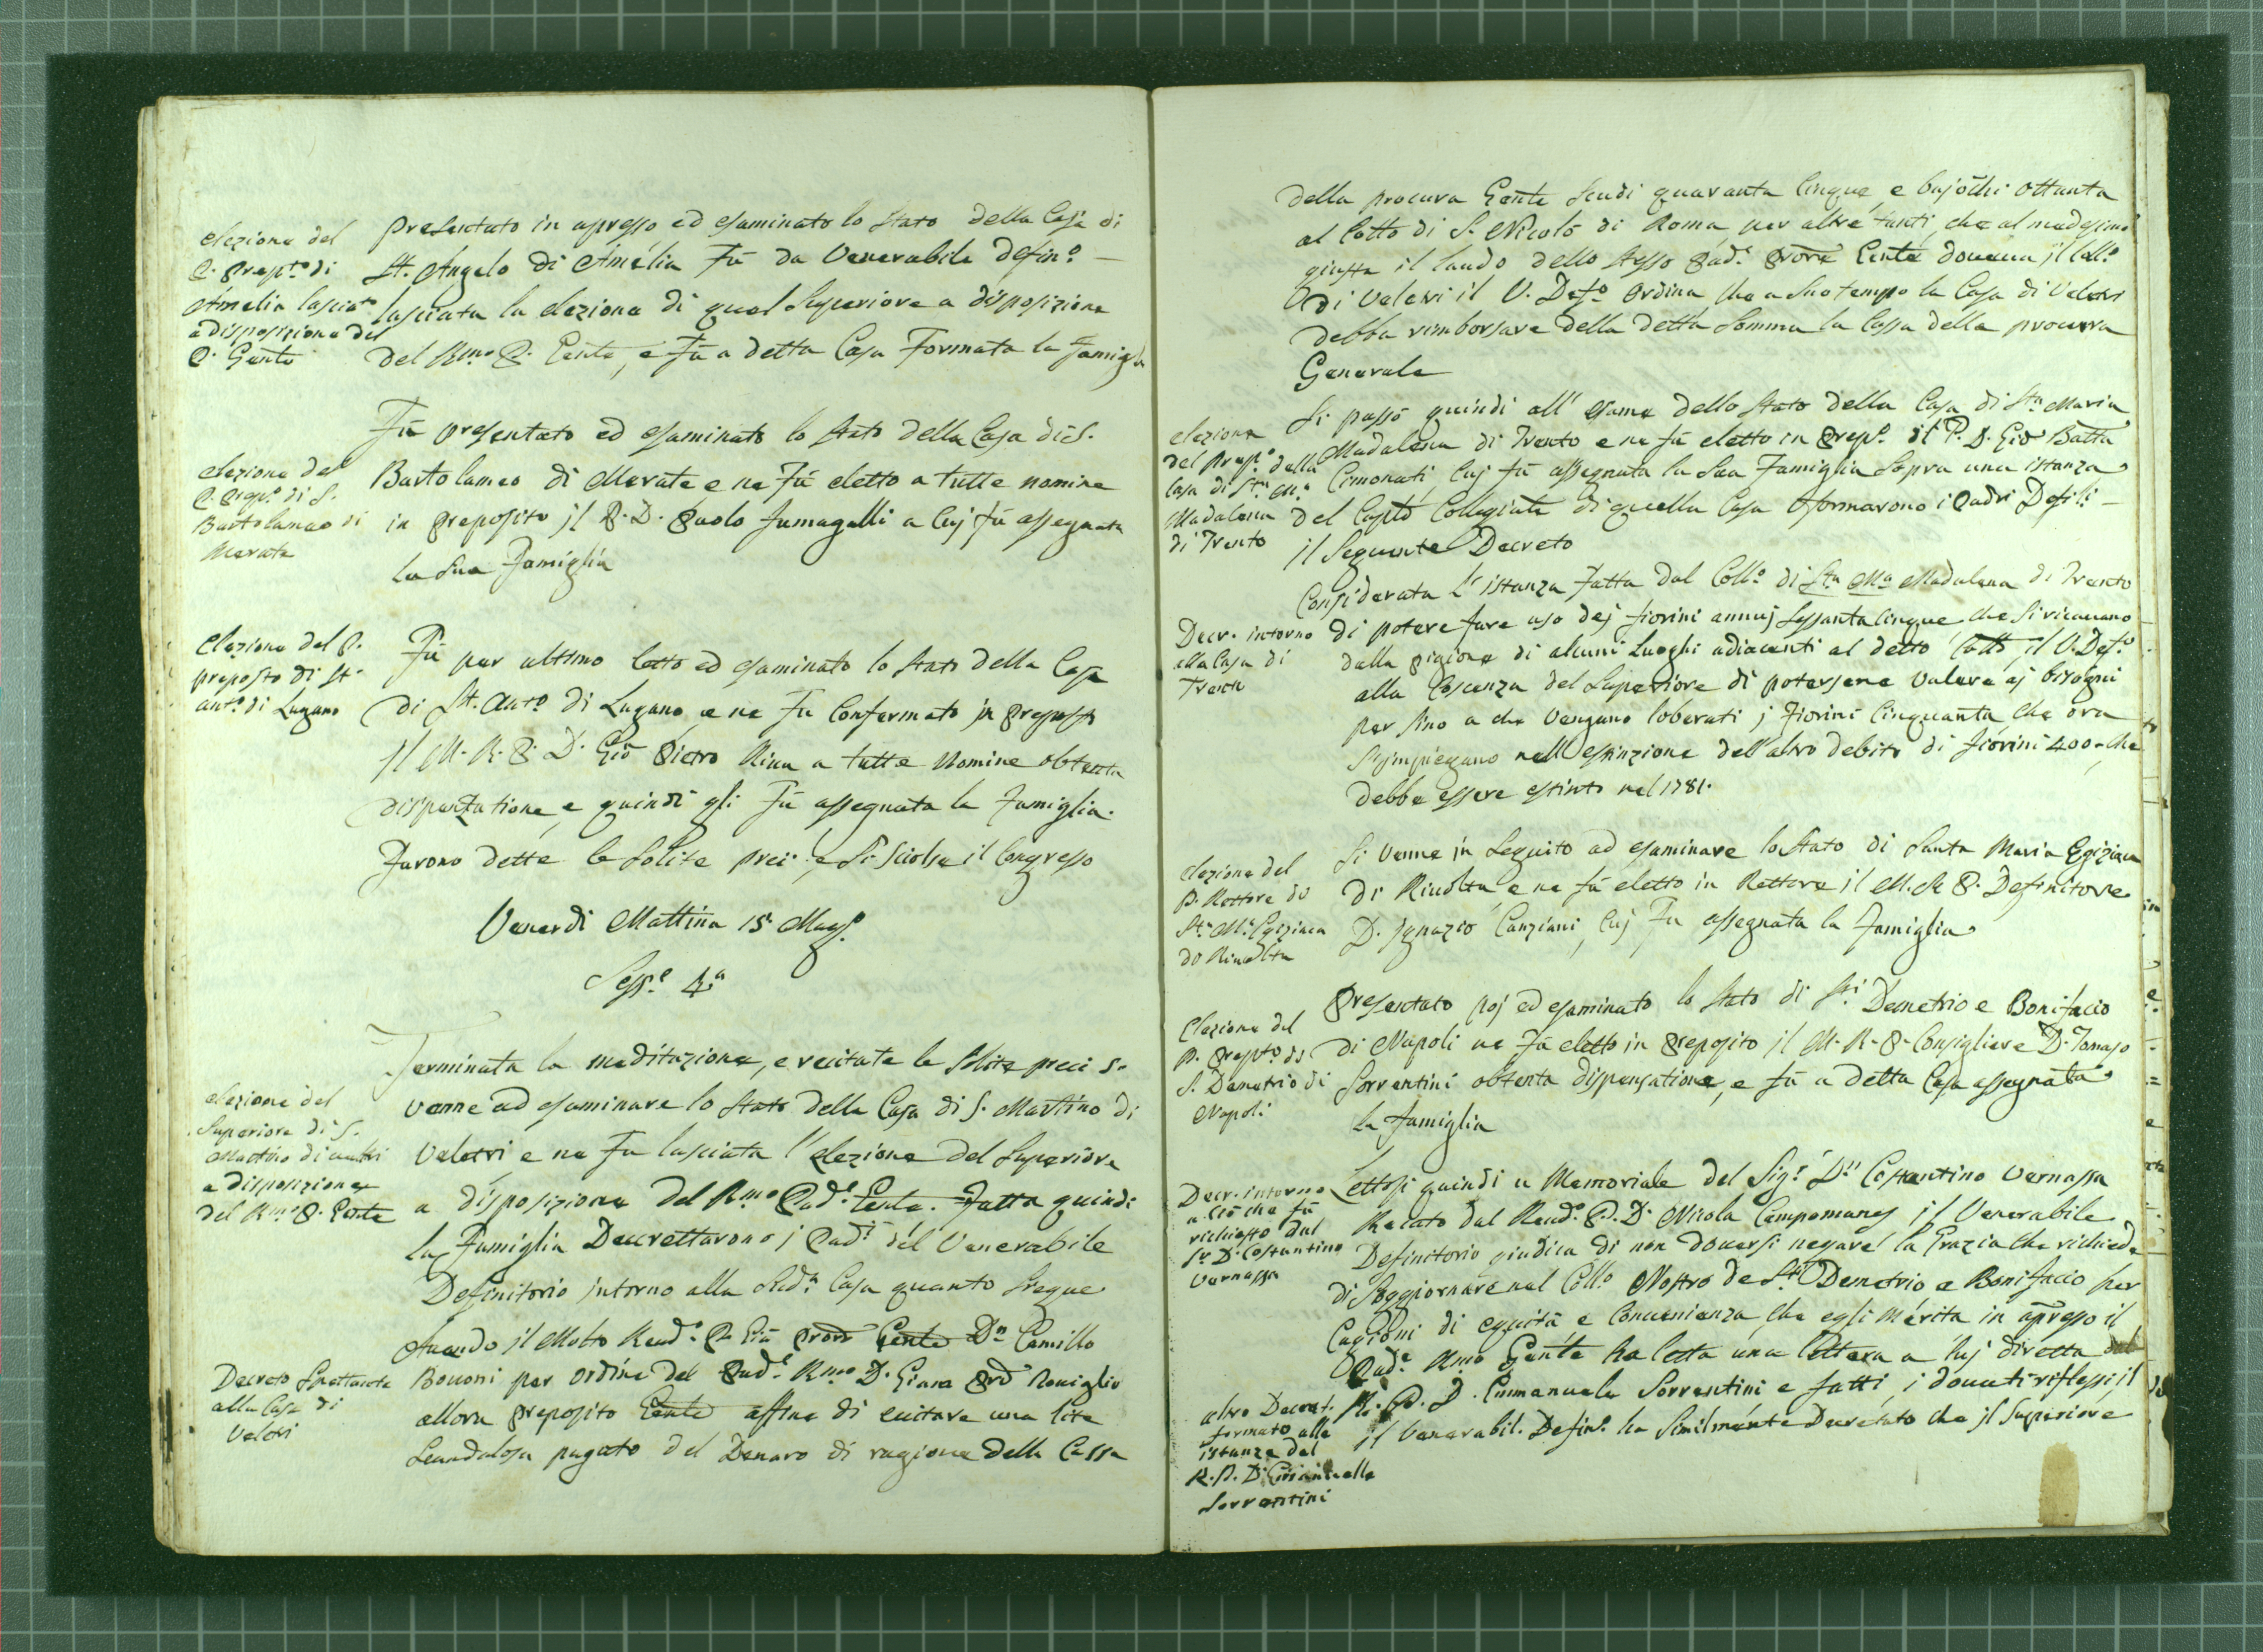 elezione del
P. Prepto di
Amelia lasciata
a disposizione del
P. Gente
Presentato in apresso ed esaminato lo Stato della Casa di
St. Angelo di Amelia Fù da Venerabile Defino —
lasciata la elezione di quel Superiore a disposizione
del Rmo P. Gente, e Fù a detta Casa Formata la Famiglia
elezione del
P. Prepo di S.
Bartolameo di
Merate
Fù presentato ed esaminato lo stato della Casa di S.
Bartolameo di Merate e ne Fù eletto a tutte nomine
in Preposito jl P. D. Paolo Fumagalli a Cuj fù assegnata
la sua Famiglia
Elezione del P.
preposto di St.
anto di Lugano
Fù per ultimo letto ed esaminato lo stato della Casa
di St. Anto di Lugano e ne Fu Confermato in Preposto
Jl M. R. P. D. Gio Pietro Riva a tutte Nomine obtenta
dispenzatione, e quindi gli Fù assegnata la Famiglia.
Furono dette le Solite preci, e Si Sciolse il Congresso
Venerdì Mattina 15 Mago
Sesse 4a
elezione del
Superiore di S.
Martino di veletri
a disposizione
del Rmo P. Gente
Terminata la meditazione, e recitate le Solite preci s.
venne ad esaminare lo stato della Casa di S. Martino di
Veletri e ne Fu lasciata l'elezione del Superiore
a disposizione del Rmo Pade Gente. Fatta quindi
la Famiglia Decrettarono j Padi del Venerabile
Definitorio intorno alla Casa quanto Siegue
Decreto Spettante
alla Casa di
Veletri
Avendo jl Molto Revdo P. Già Gente Dn Camillo
Bovoni per ordine del Pade Rmo D. Roviglio
allora Preposito Gente affine di evitare una lite
Scandalosa pagato del Denaro di ragione della Cassa
della procura Gente Scudi quaranta Cinque, e bajocchi ottanta
al Collo di S. Nicolò di Roma per altre tanti, che al medesimo
giusta il laudo dello stesso Pade Gente doueua jl Collo
di Veletri il V. Defo ordina, che a Suo tempo la Casa di Veletri
debba rimborsare della detta Somma la Cassa della procura
Generale
elezione
del prepo della
Casa di Sta Ma
Madalena
di Trento
Si passò quindi all' esame dello stato della Casa di Sta Maria
Madalena di Trento e ne fù eletto in Prepo il P. D. Gio Batta
Cimonati, Cuj fù assegnata la Sua Famiglia Sopra una istanza
del Capto Collegiale di quella Casa formarono i Padri Defili —
il Seguente Decreto
Decr. intorno
alla Casa di
Trento
Considerata l' istanza Fatta dal Collo di Sta Ma Madalena di Trento
di potere fare uso dej fiorini annuj Sessanta Cinque che si ricauano
dalla pigione di alcuni Luoghi adiacenti al detto Collo, il V. Defo
alla Coscenza del Superiore di potersene valere aj bisogni
per fino a che Vengano loberati j Fiorini Cinquanta, che ora
S'jmpiegano nell'estinzione dell'altro debito di fiorini 400. che
debbe essere estinto nel 1781.
elezione del
P. Rettore di
Sta Ma Egiziaca
di Rivolta
Si venne jn Seguito ad esaminare lo stato di Santa Maria Egiziaca
di Rivolta, e ne fù eletto in Rettore jl M. R. P. Definitore
D. Jgnazio Canziani, Cuj Fu assegnata la Famiglia
Elezione del
P. Prepto di
S. Demetrio di
Napoli
Presentato poj ed esaminato lo stato di Sti Demetrio e Bonifacio
di Napoli ne Fù eletto in Preposito jl M. R. P. Consigliere D. Tomaso
Sorrentini obtenta dispensatione, e fù a detta Casa assegnata
la Famiglia
Decr. intorno
a Ciò che fù
richiesto dal
Sr D. Costantino
Vernassa
Lettosi quindi u Memoriale del Sigr Dn Costantino Vernassa
Recato dal Revdo P. D. Nicola Campomanes jl Venerabile
Definitorio giudica di non douersi negare la Grazia che richiede
di Soggiornare nel Collo Nostro de Sti Demetrio e Bonifacio per
Cagioni di equità, e Conuenienza, che egli merita in apresso il
Pade Rmo Gente ha letta una lettera a luj diretta dal
altro Decret.
formato alla
istanza del
R. P. D. Emanuelle
Sorrentini
R. P. D. Emmanuele Sorrentini e fatti j douuti riflessi, jl
jl Venerabil. Defino ha Similmente Decretato che jl Superiore